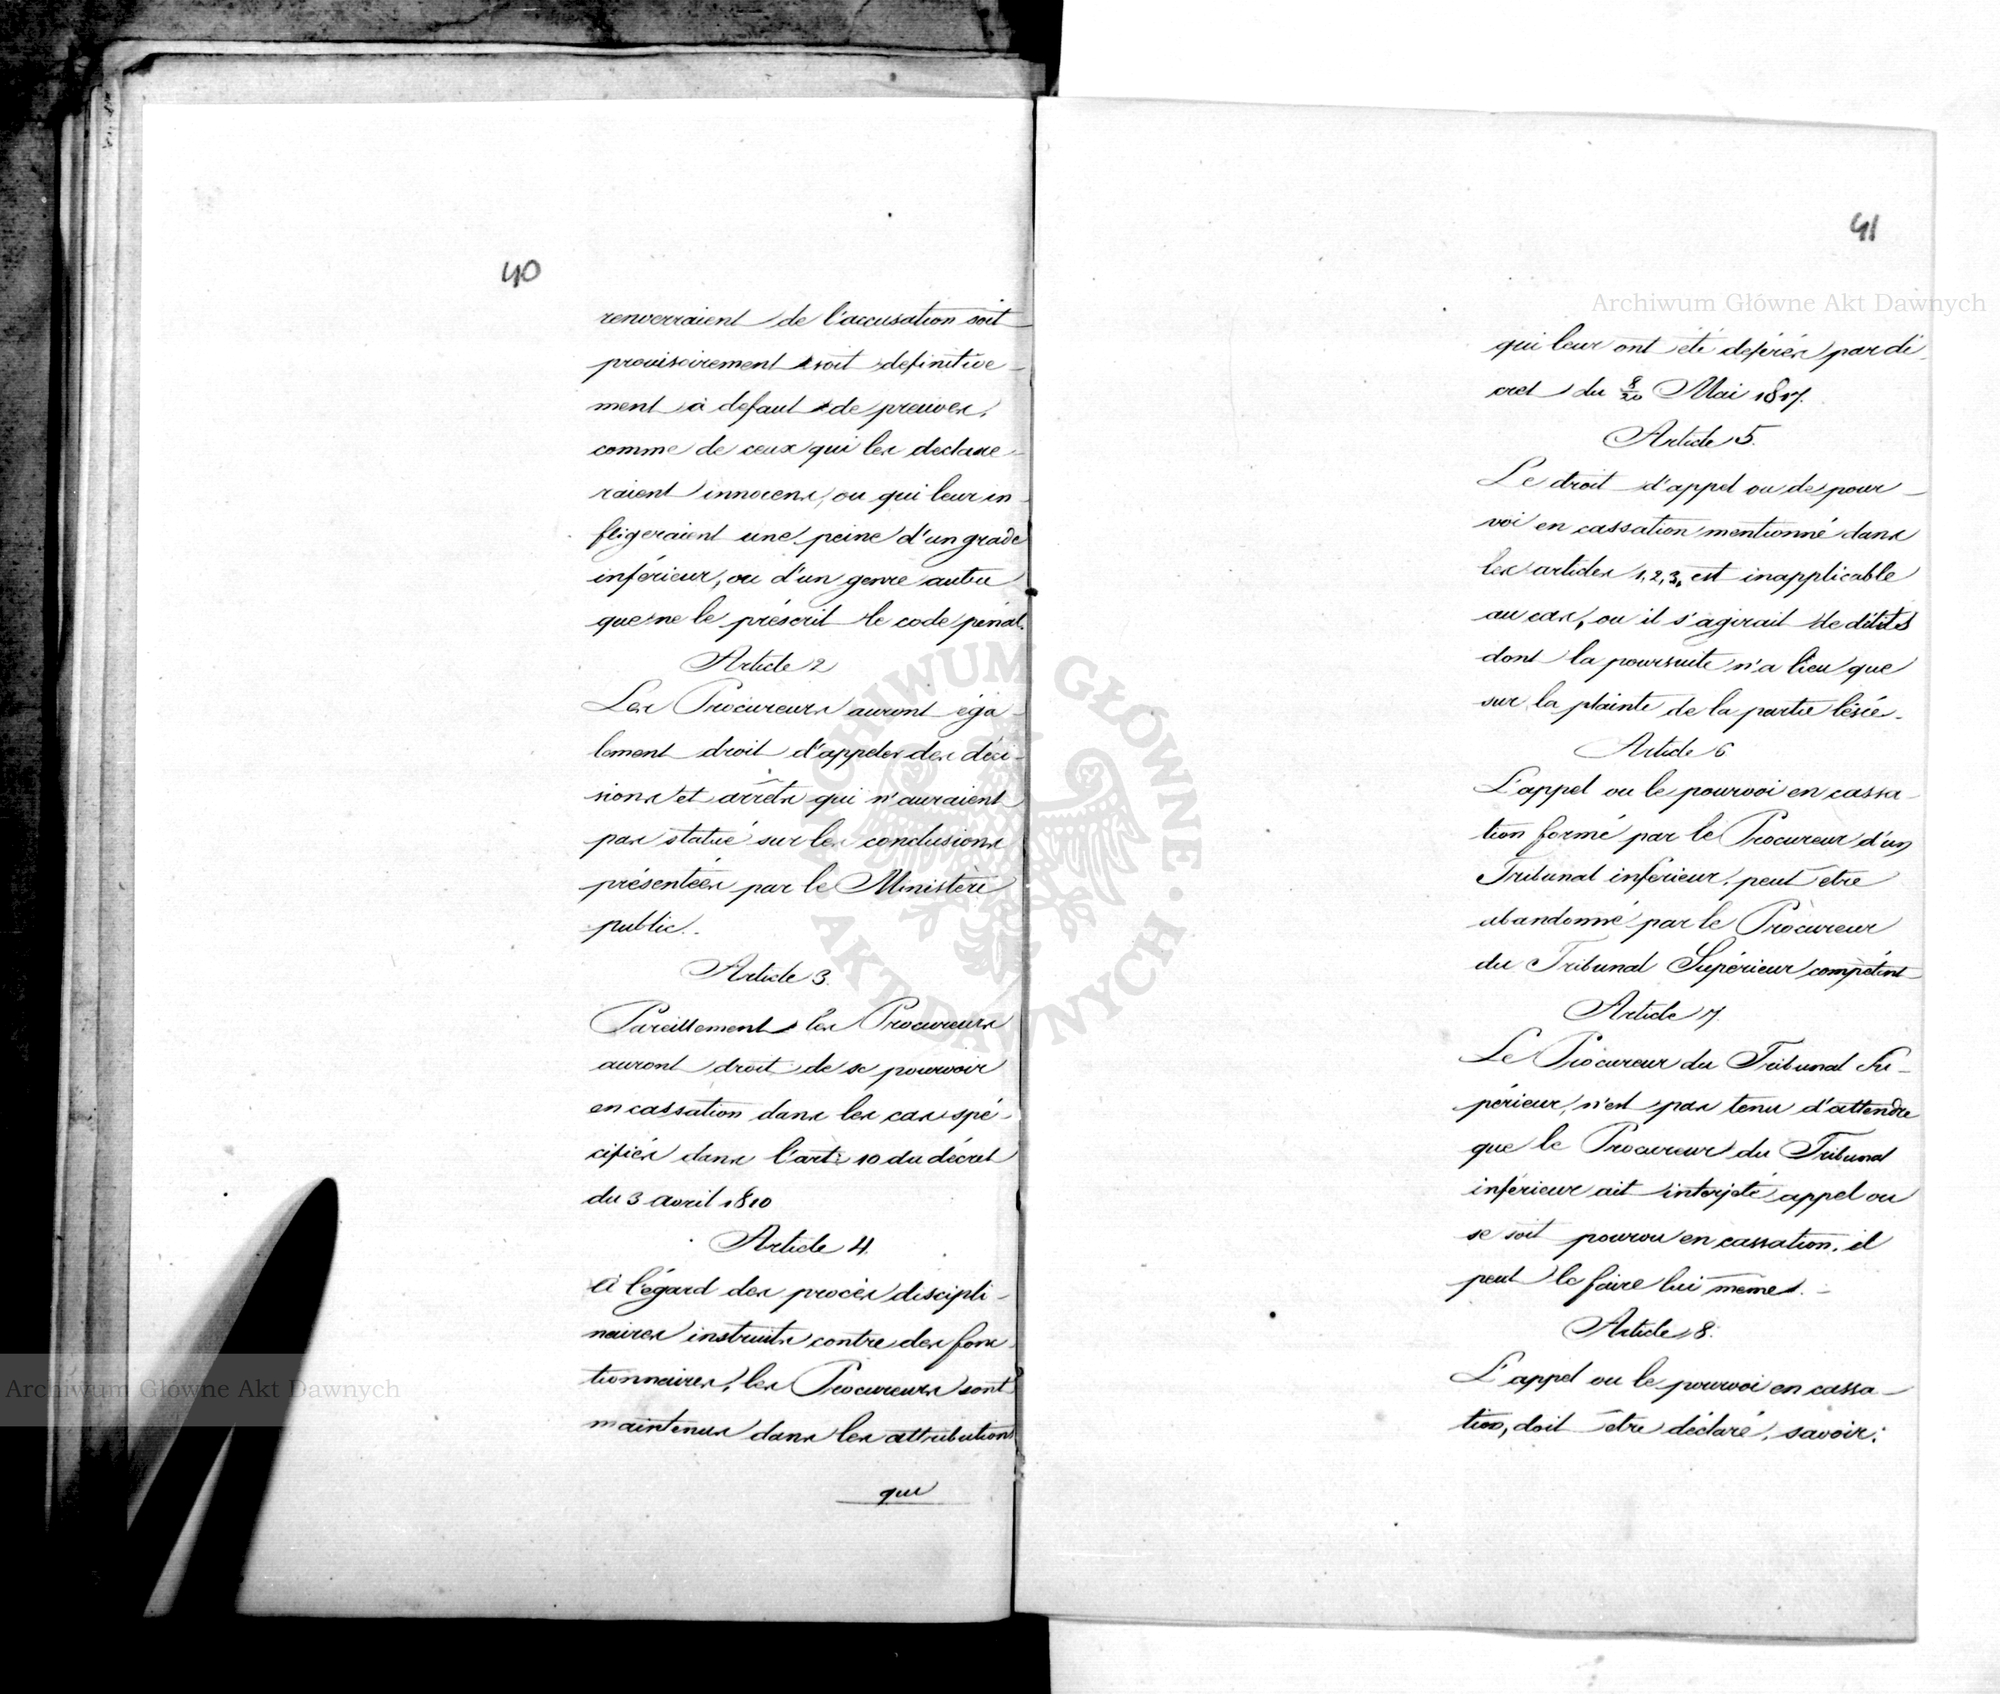 40
renverraient de l'accusation soit
provisoirement soit definitive-
ment à defaut de preuves,
comme de ceux qui les declare-
raient innocens, ou qui leur in-
fligeraient une peine d'un grade
inférieur, ou d'un genre autre
que ne le préscrit le code pénal.
Article 2
Les Procureurs auront éga-
lement droit d'appeler des déci-
sions et arrêts qui n'auraient
pas statué sur les conclusions
présentées par le Ministère
public.
Article 3.
Pareillement les Procureurs
auront droit de se pourvoir
en cassation dans les cas spé-
cifiés dans l'art: 10 du décret
du 3 avril 1810
Article 4.
A l'égard des procès discipli-
naires instruits contre des fonc-
tionnaires, les Procureurs sont
maintenus dans les attributions
qui
41
qui leur ont été deférés par dé-
cret du 8/20 Mai 1817.
Article 5.
Le droit d'appel ou de pour-
voi en cassation mentionné dans
les articles 1, 2, 3, est inapplicable
au cas, ou il s'agirait de délits
dont la poursuite n'a lieu que
sur la plainte de la partie lésée.
Article 6
L'appel ou le pourvoi en cassa-
tion formé par le Procureur d'un
Tribunal inférieur, peut etre
abandonné par le Procureur
du Tribunal Supérieur compétent
Article 7.
Le Procureur du Tribunal Su-
périeur, n'est pas tenu d'attendre
que le Procureur du Tribunal
inférieur ait interjeté appel ou
se soit pourvu en cassation, il
peut le faire lui même.
Article 8.
L'appel ou le pourvoi en cassa-
tion, doit etre déclaré, savoir:
Archiwum Główne Akt Dawnych
Archiwum Główne Akt Dawnych
ARCHIWUM GŁÓWNE · AKT DAWNYCH ·